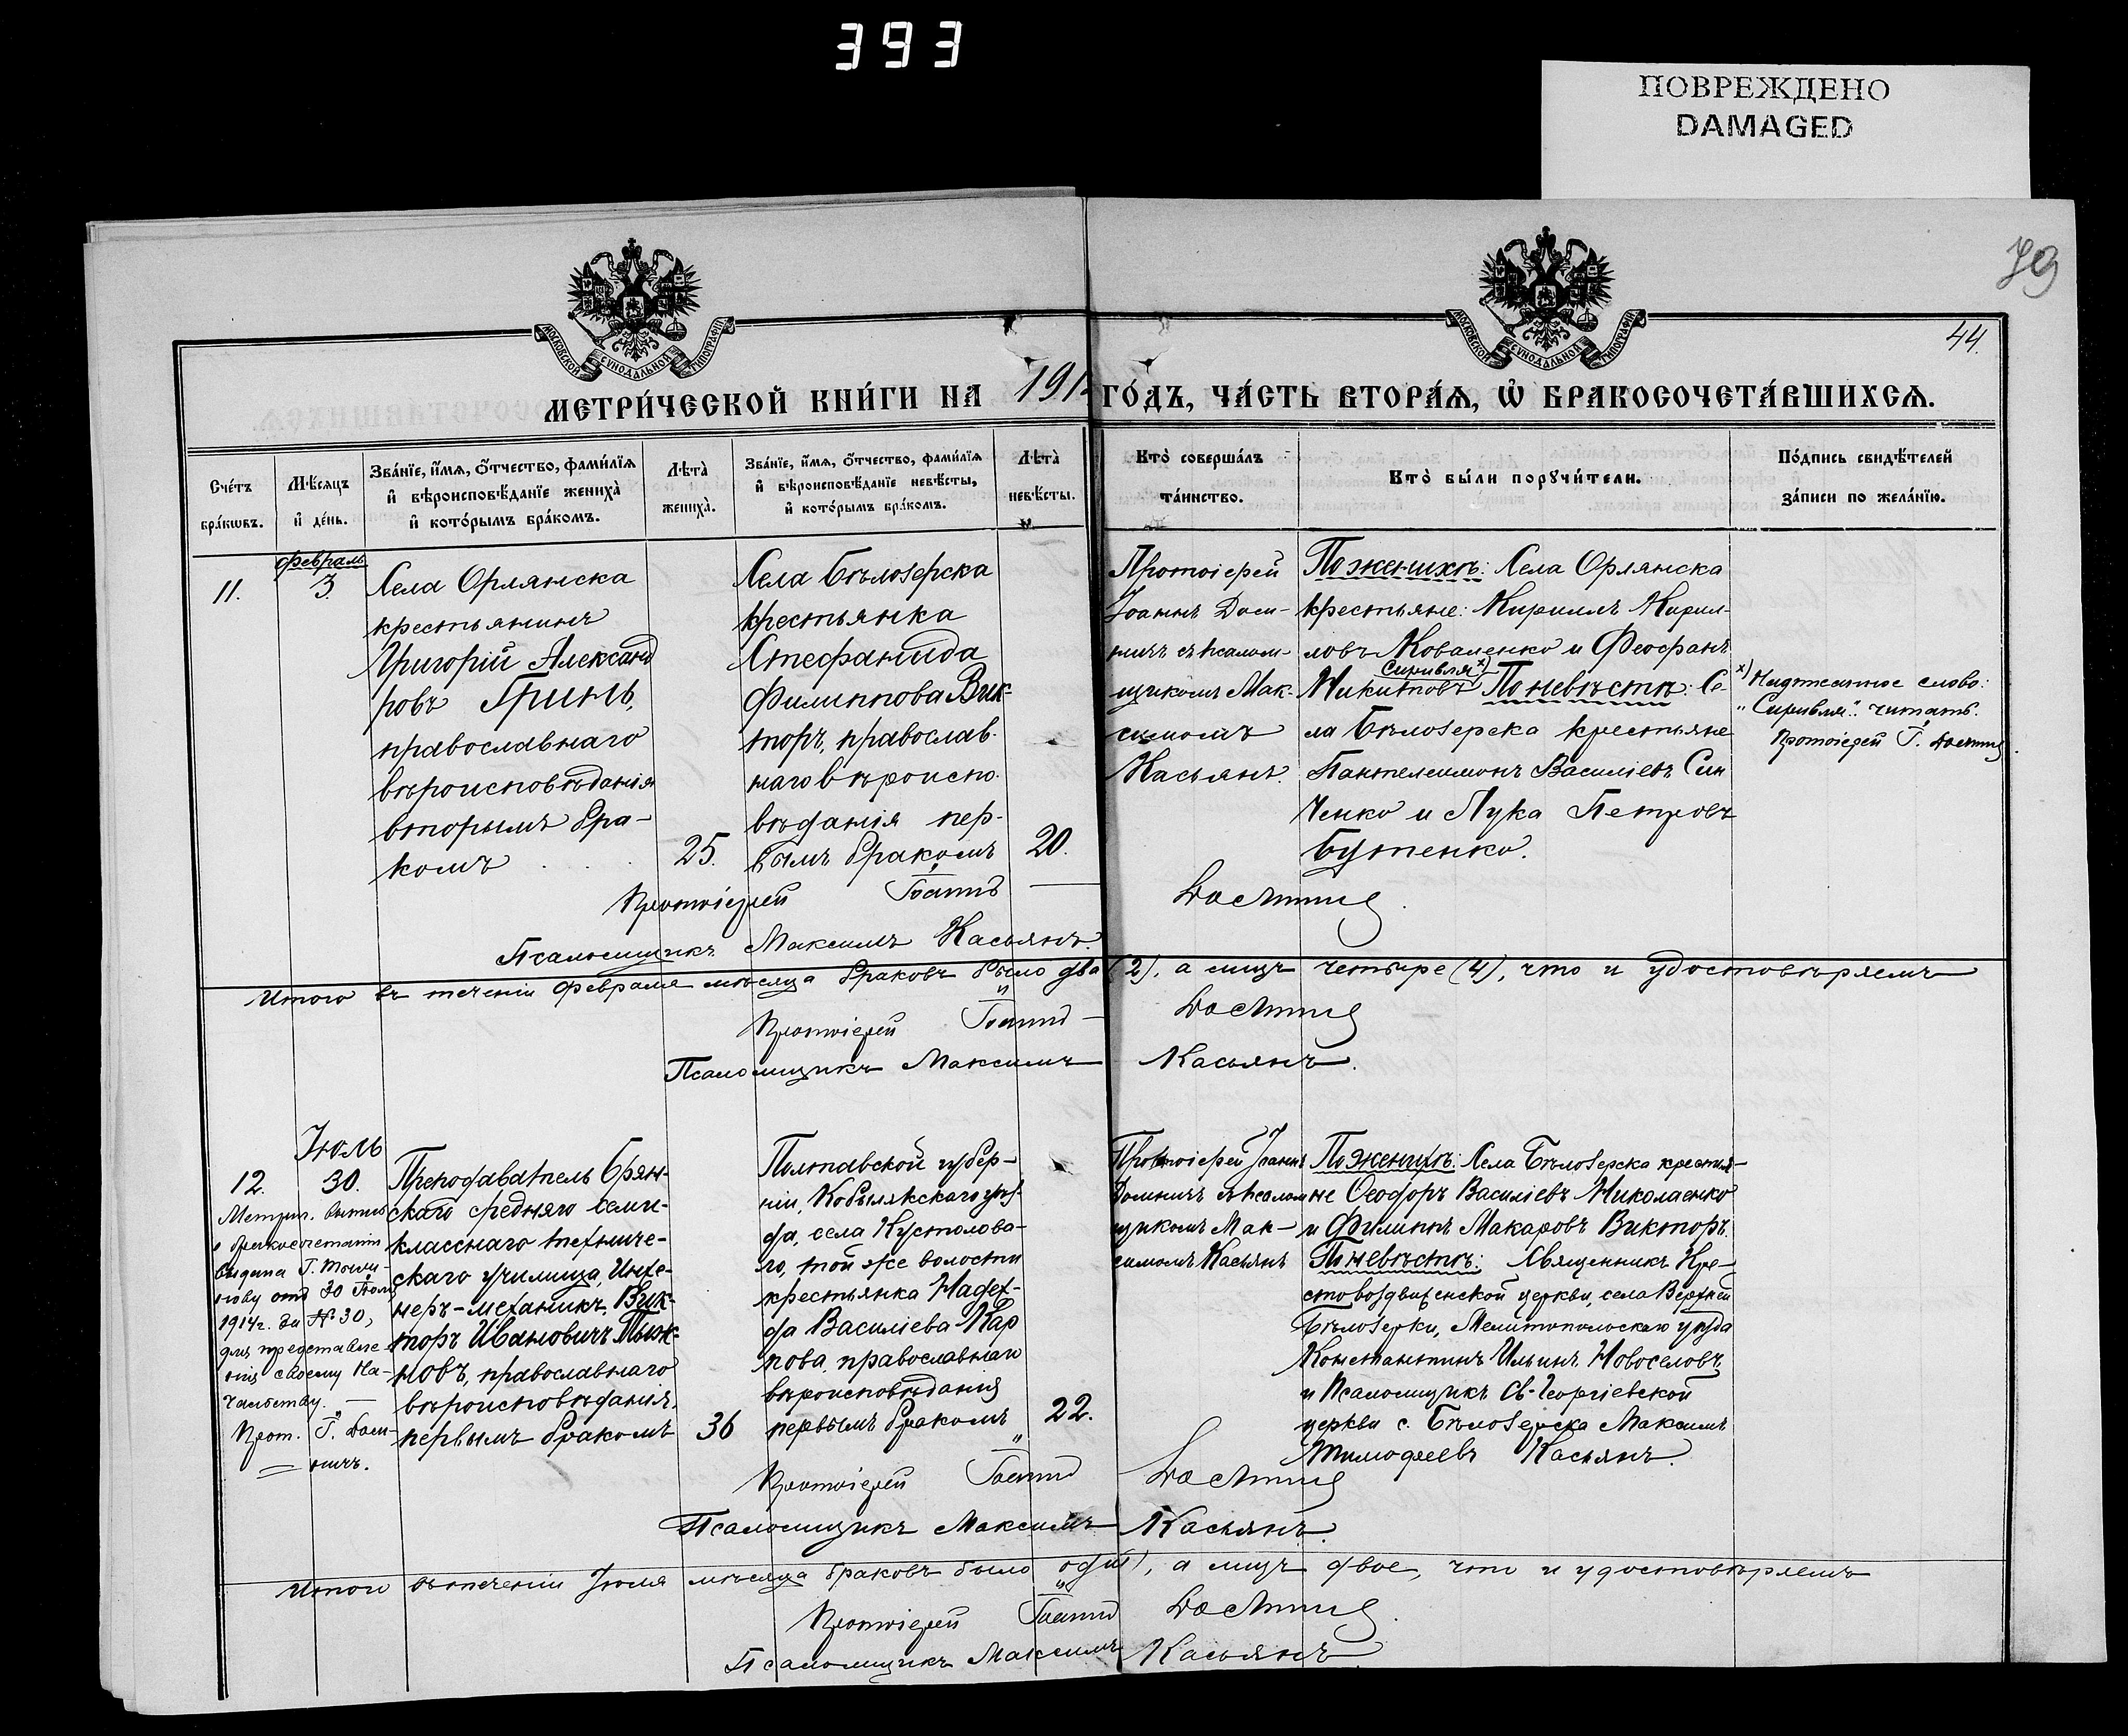 393
ПОВРЕЖДЕНО
DAMAGED
79
44.
МОСКОВСКОЙ СѴНОДАЛЬНОЙ ТИПОГРАФІИ
МОСКОВСКОЙ СѴНОДАЛЬНОЙ ТИПОГРАФІИ
МЕТРИ́ЧЕСКОЙ КНИ́ГИ НА 191 ГО́ДЪ, ЧА́СТЬ ВТОРА́Ѧ, Ѽ БРАКОСОЧЕТА́ВШИХСѦ.
Сче́тъ
бра́кѡвъ.
Мѣ́сяцъ
и҆ де́нь.
Зва́нїе, и҆́мѧ, ѻ҆́тчество, фами́лїѧ
и҆ вѣроисповѣ́данїе жениха̀
и҆ кото́рымъ бра́комъ.
Лѣта̀
жениха̀.
Зва́нїе, и҆́мѧ, ѻ҆́тчество, фами́лїѧ
и҆ вѣроисповѣ́данїе невѣ́сты,
и҆ кото́рымъ бра́комъ.
Лѣта̀
невѣ́сты.
Кто̀ соверша́лъ
та́инство.
Кто̀ бы́ли порꙋчи́тели.
По́дпись свидѣ́телей
за́писи по жела́нїю.
Февраль
11.
3.
Села Орлянска
крестьянинъ
Григорій Александ
ровъ Гринь,
православнаго
вѣроисповѣданія
вторымъ бра-
комъ
25.
Села Бѣлозерска
крестьянка
Стефанида
Филиппова Вик-
торъ, православ-
наго вѣроиспо-
вѣданія пер-
вымъ бракомъ
20.
Протоіерей
Іоаннъ Дом-
ничъ съ псалом-
щикомъ Мак-
симомъ
Касьянъ.
По женихѣ: Села Орлянска
крестьяне: Кириллъ Кирил-
ловъ Коваленко и Феофанъ
Сиривля х)
Никитовъ По невѣстѣ: Се-
ла Бѣлозерска крестьяне
Пантелеимонъ Василіевъ Син
ченко и Лука Петровъ
Бутенко.
х) Надписанное слово:
"Сиривля" читать.
Протоіерей І. Домничъ.
Протоіерей Іоаннъ Домничъ.
Псаломщикъ Максимъ Касьянъ.
Итого въ теченіи Февраля мѣсяца браковъ было два (2), а лицъ четыре (4), что и удостовѣряемъ
Протоіерей Іоаннъ Домничъ
Псаломщикъ Максимъ Касьянъ.
Іюль
12.
30.
Метрич. выпись
о бракосочетаніи
выдана
отъ 30 Іюля
1914 г. за № 30,
для представле-
нія своему На-
чальству. —
Прот. І. Дом-
ничъ.
Преподаватель Брян-
скаго средняго семи-
класснаго техниче-
скаго училища, Инже-
неръ-механикъ, Вик-
торъ Ивановичъ Тыж-
новъ, православнаго
вѣроисповѣданія,
первымъ бракомъ
36
Полтавской губер-
ніи, Кобылякскаго уѣз-
да, села Кустолова-
го, той же волости
крестьянка Надеж-
да Василіева Кар
пова, православнаго
вѣроисповѣданія
первымъ бракомъ
22.
Протоіерей Іоаннъ
Домничъ съ псалом-
щикомъ Мак-
симомъ Касьянъ
По женихѣ: Села Бѣлозерска крестья-
не Ѳеодоръ Василіевъ Николаенко
и Филиппъ Макаровъ Викторъ.
По невѣстѣ: Священникъ Кре-
стовоздвиженской церкви, села Верхней
Бѣлозерки, Мелитопольскаго уѣзда
Константинъ Ильинъ Новоселовъ
и Псаломщикъ Св-Георгіевской
церкви с. Бѣлозерска Максимъ
Тимофеевъ Касьянъ.
Протоіерей Іоаннъ Домничъ
Псаломщикъ Максимъ Касьянъ.
Итого въ теченіи Іюля мѣсяца браковъ было одинъ, а лицъ двое, что и удостовѣряемъ
Протоіерей Іоаннъ Домничъ.
Псаломщикъ Максимъ Касьянъ